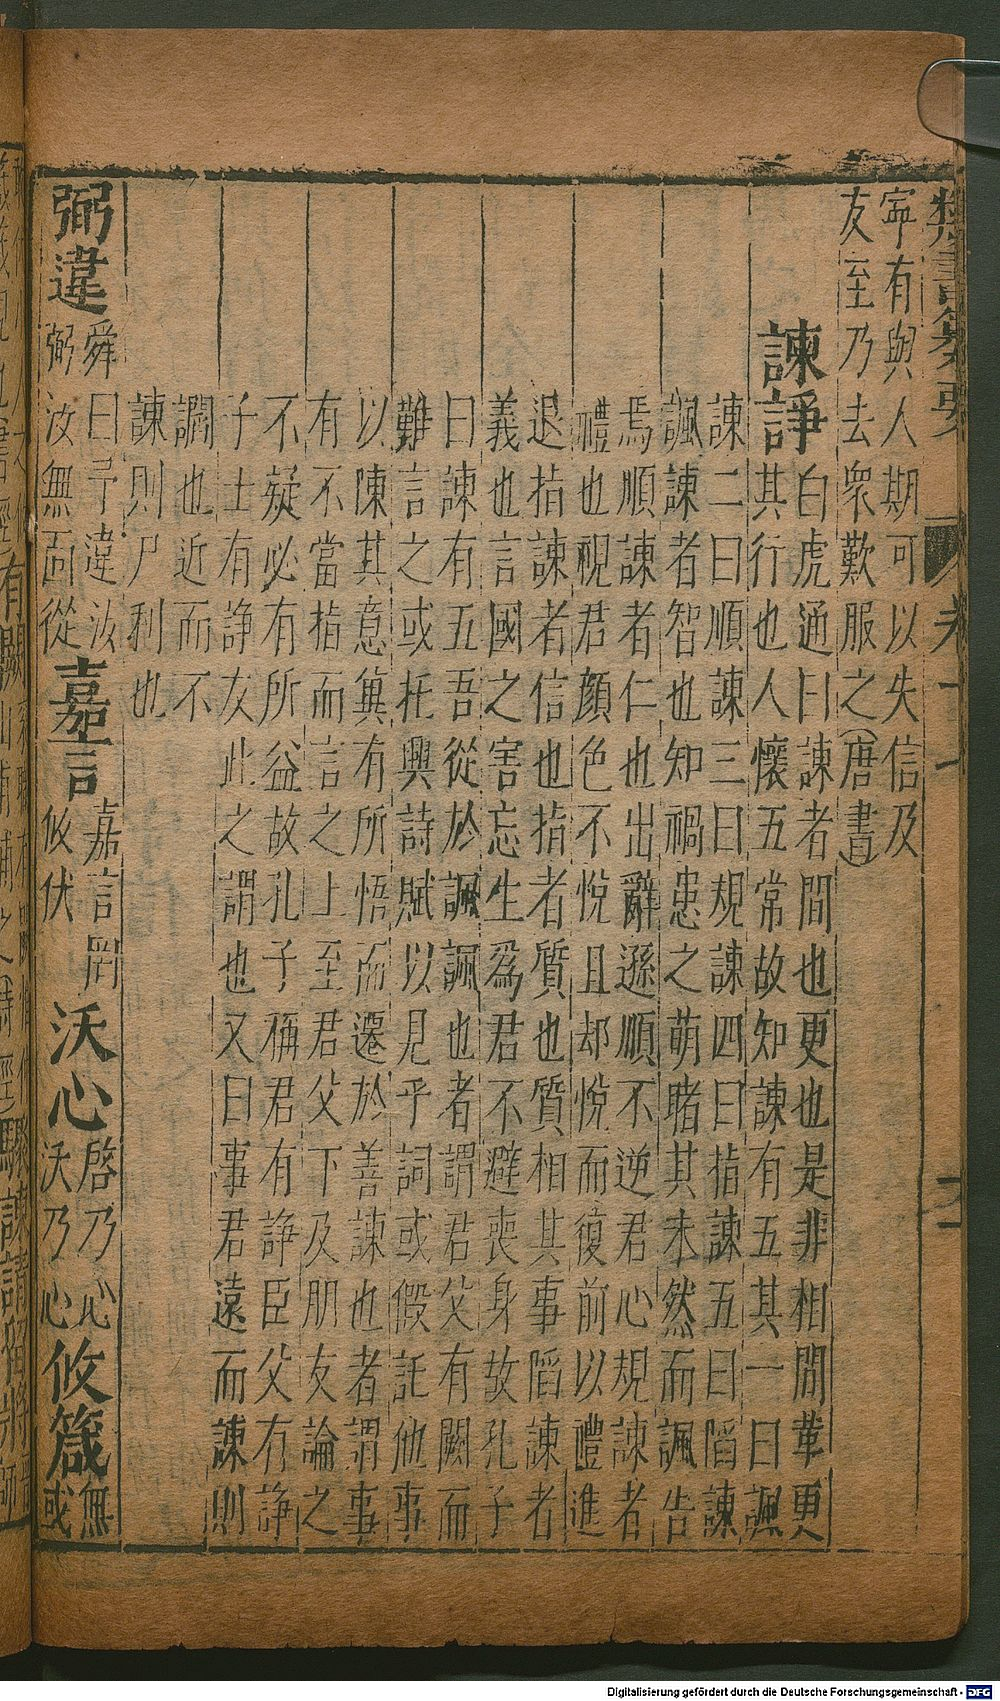 寕有與人期可以失信及
友至乃去衆歎服之(唐書)
諫諍
白虎通曰諫者間也更也是非相間革更
其行也人懷五常故知諫有五其一曰諷
諫二曰順諫三曰規諫四曰指諫五曰䧟諫
諷諫者智也知禍患之萌睹其未然而諷告
焉順諫者仁也出辭遜順不逆君心規諫者
禮也視君顔色不悅且却悅而復前以禮進
退指諫者信也指者質也質相其事䧟諫者
義也言國之害忘生爲君不避喪身故孔子
曰諫有五吾從於諷諷也者謂君父有闕而
難言之或托興詩賦以見乎詞或假託他事
以陳其意冀有所悟而遷於善諫也者謂事
有不當指而言之上至君父下及朋友論之
不疑必有所益故孔子稱君有諍臣父有諍
子士有諍友此之謂也又曰事君遠而諫則
讇也近而不
諫則尸利也
弼違
舜曰予違汝
弼汝無面從
嘉言
嘉言罔
攸伏
沃心
啓乃心
沃乃心
攸箴
無
或
Digitalisierung gefördert durch die Deutsche Forschungsgemeinschaft - DFG